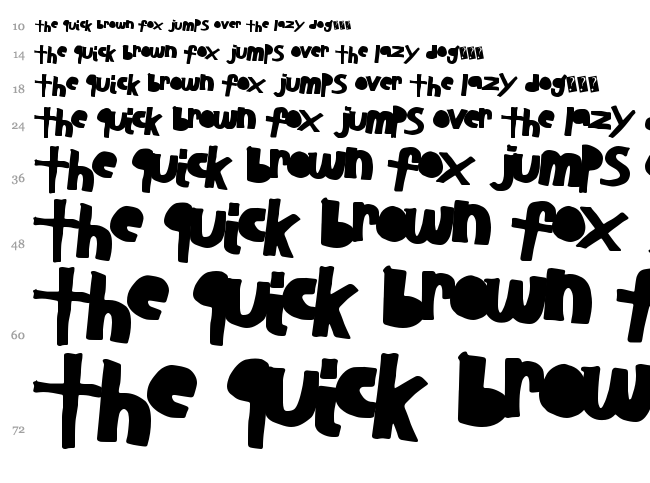 10 the quick brown fox jumps over the lazy dog
14 the quick brown fox jumps over the lazy dog
18 the quick brown fox jumps over the lazy dog
24 the quick brown fox jumps over the lazy
36 the quick brown fox jumps
48 the quick brown fox
60 the quick brown f
72 the quick brow